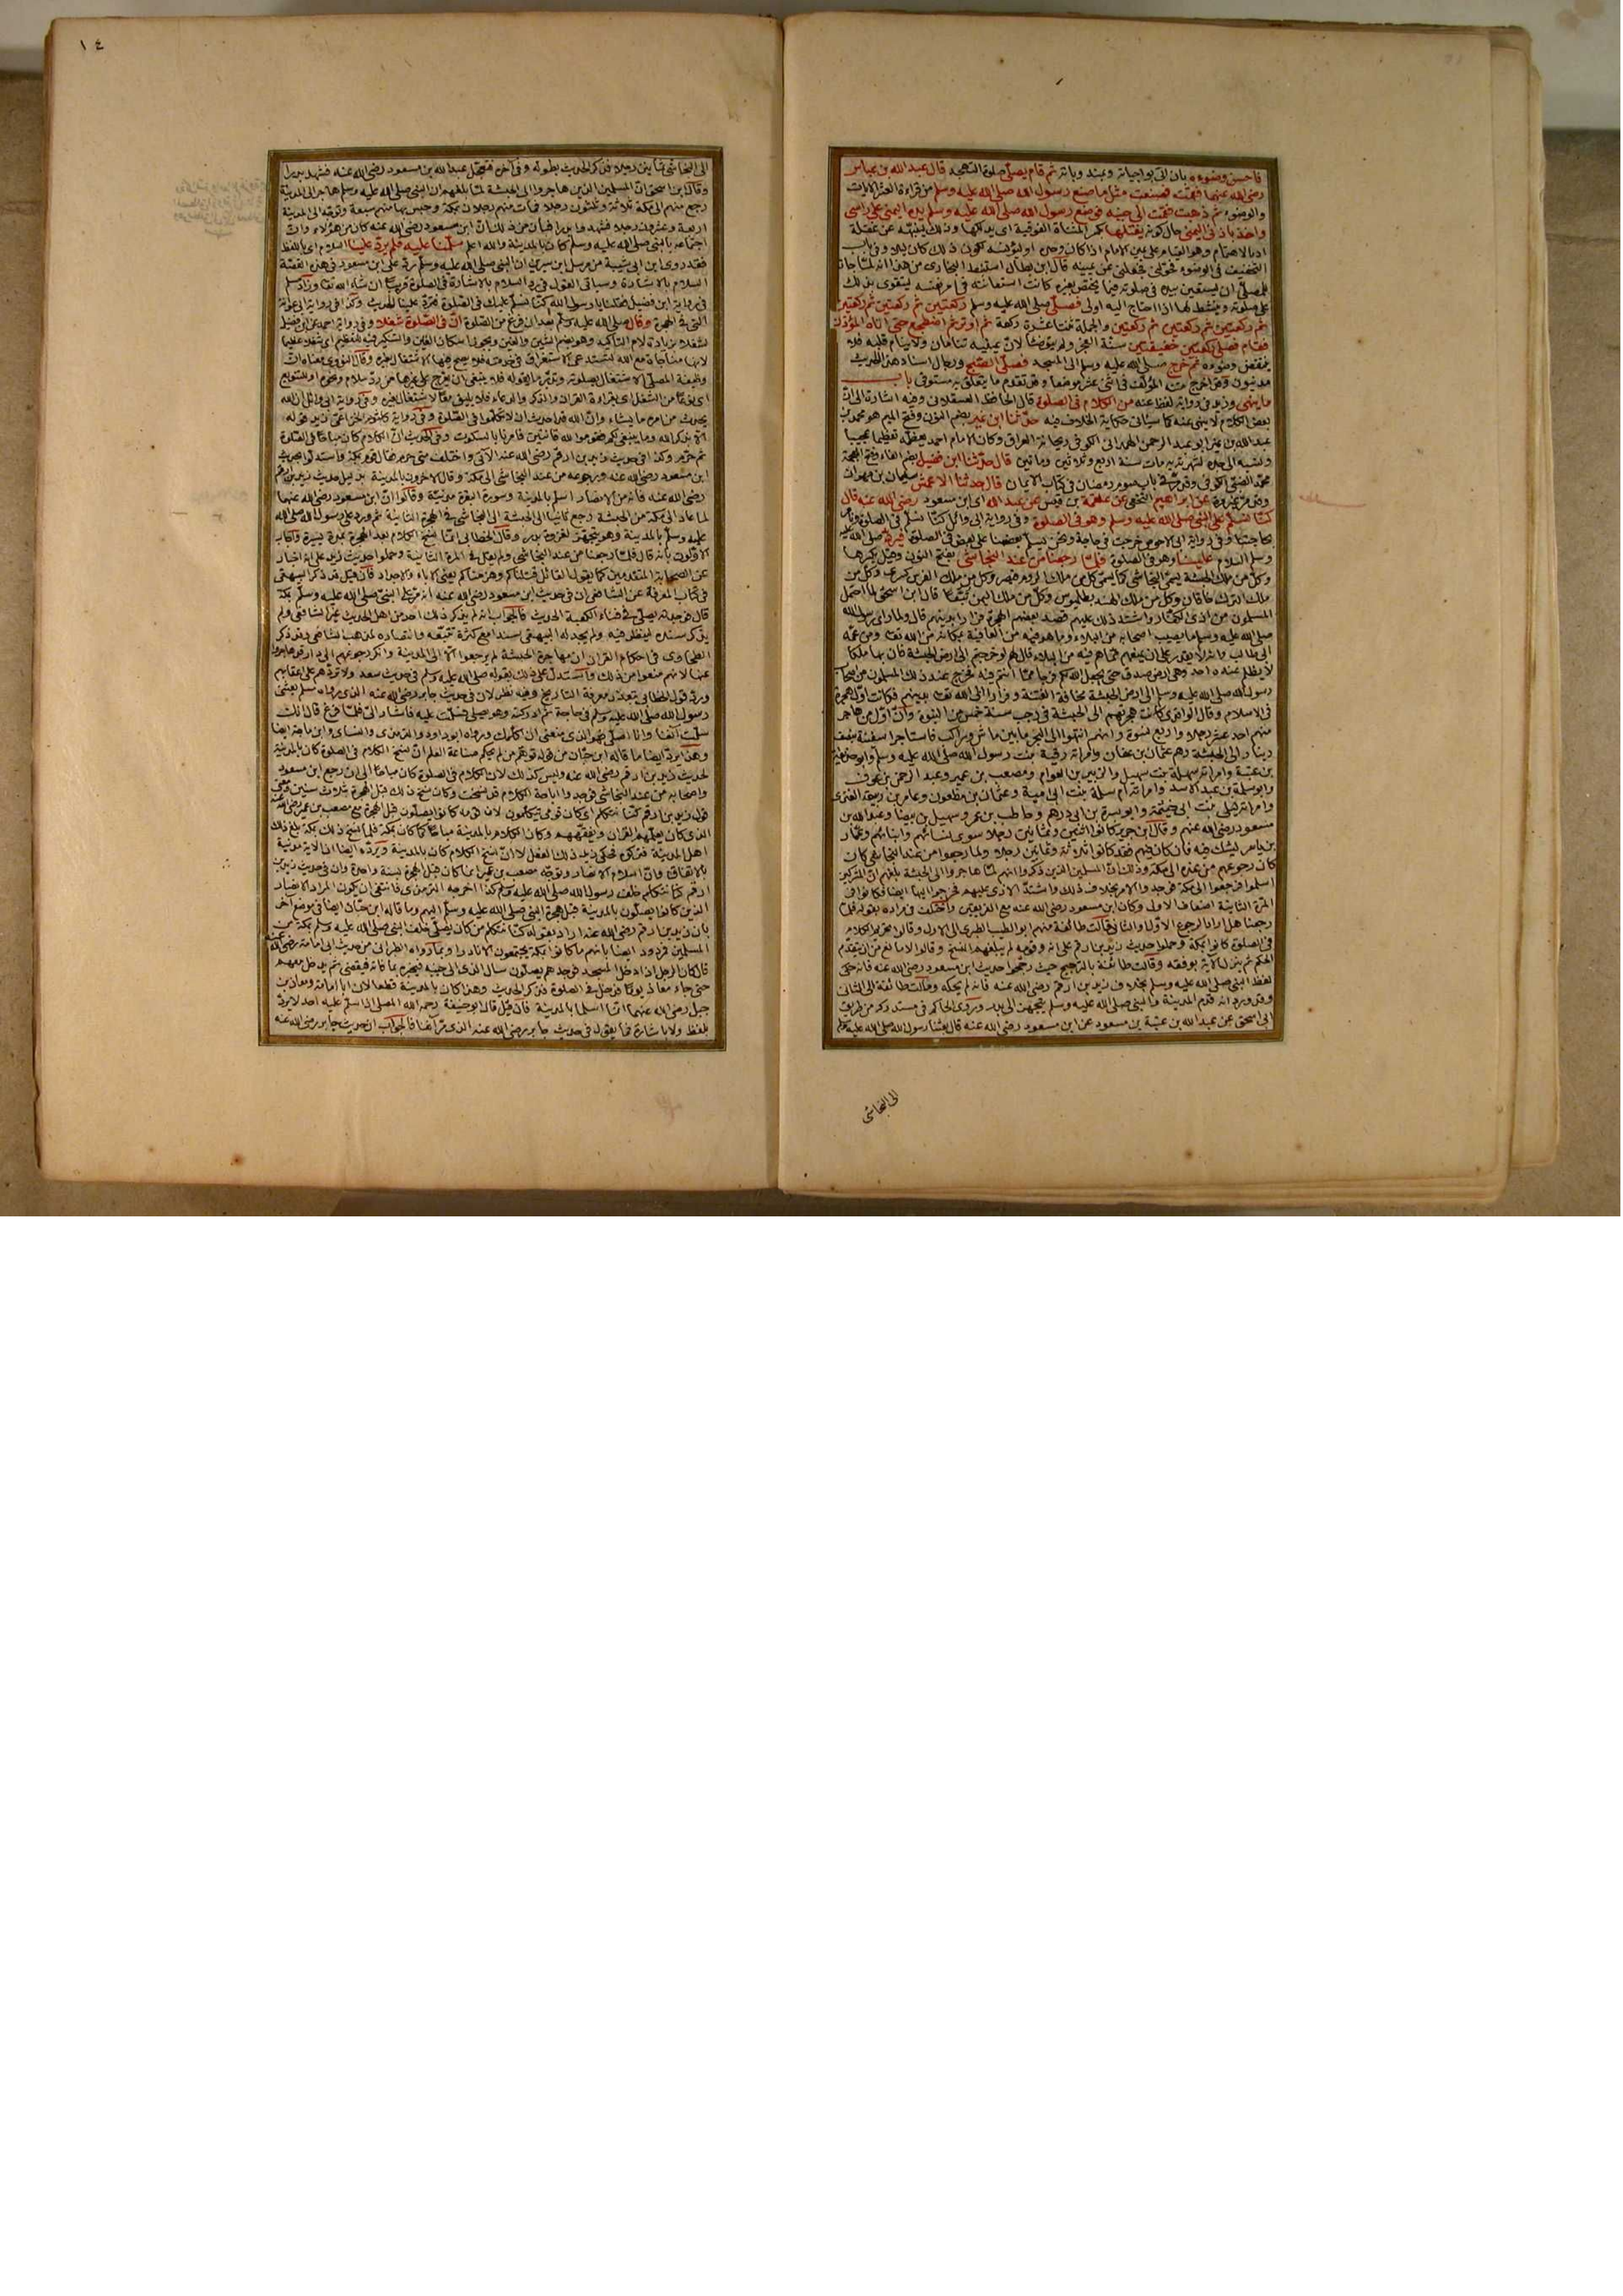 فاحسن وضوءه بان اتى بواجباته ومندوباته ثم قام يصلى صلوة التهجد قال عبد الله بن عباس
رضى الله عنهما فقمت فصنعت مثل ما صنع رسول الله صلى الله عليه وسلم من قراءة العشر الآيات
والوضوء ثم ذهبت فقمت الى جنبه فوضع رسول الله صلى الله عليه وسلم يده اليمنى على رأسى
واخذ باذنى اليمنى حال كونه يفتلها بكسر المثناة الفوقية اى يدلكها وذلك لينبهه عن غفلة
ادب الائتمام وهو القيام على يمين الامام اذا كان وحده او ليؤنسه لكون ذلك كان ليلا وفى باب
التخفيف فى الوضوء فحولنى فجعلنى عن يمينه قال ابن بطال استنبط البخارى من هذا انه لما جاز
للمصلى ان يستعين بيده فى صلوته فيما يختص بغيره كانت استعانته فى امر نفسه ليتقوى بذلك
على صلوته وينشط لها اذا احتاج اليه اولى فصلى صلى الله عليه وسلم ركعتين ثم ركعتين ثم ركعتين
ثم ركعتين ثم ركعتين ثم ركعتين والجملة ثنتا عشرة ركعة ثم اوتر ثم اضطجع حتى اتاه المؤذن
فقام فصلى ركعتين خفيفتين سنة الفجر ولم يتوضأ لان عينيه تنامان ولا ينام قلبه فلا
ينقض وضوءه ثم خرج صلى الله عليه وسلم الى المسجد فصلى الصبح ورجال اسناد هذا الحديث
مدنيون وقد اخرج متنه المؤلف فى اثنى عشر موضعا وقد تقدم ما يتعلق به مستوفى باب
ما ينهى وزيد فى رواية لفظ عنه من الكلام فى الصلوة قال الحافظ العسقلانى وفيه اشارة الى ان
بعض الكلام لا ينهى عنه كما سيأتى حكاية الخلاف فيه حدثنا ابن نمير بضم النون وفتح الميم هو محمد بن
عبد الله بن نمير ابو عبد الرحمن الهمدانى الكوفى ريحانة العراق وكان الامام احمد يعظمه تعظيما عجيبا
ونسبه الى جده لشهرته به مات سنة اربع وثلاثين ومائتين قال حدثنا ابن فضيل بضم الفاء وفتح المعجمة
محمد الضبى الكوفى وقد مر فى باب صوم رمضان فى كتاب الايمان قال حدثنا الاعمش سليمان بن مهران
وقد مر غير مرة عن ابراهيم النخعى عن علقمة بن قيس عن عبد الله اى ابن مسعود رضى الله عنه قال
كنا نسلم على النبى صلى الله عليه وسلم وهو فى الصلوة وفى رواية ابى وائل كنا نسلم فى الصلوة ونأمر
بحاجتنا وفى رواية ابى الاحوص خرجت فى حاجة ونحن يسلم بعضنا على بعض فى الصلوة فيرد صلى الله عليه
وسلم السلام علينا وهو فى الصلوة فلما رجعنا من عند النجاشى بفتح النون وقيل بكسرها
وكل من ملك الحبشة يسمى النجاشى كما يسمى كل من ملك الروم قيصر وكل من ملك الفرس كسرى وكل من
ملك الترك خاقان وكل من ملك الهند بطلميوس وكل من ملك اليمن تبعا قال ابن اسحق لما احتمل
المسلمون من اذى الكفار واشتد ذلك عليهم قصد بعضهم الهجرة فرارا بدينهم قال ولما رأى رسول الله
صلى الله عليه وسلم ما يصيب اصحابه من البلاء وما هو فيه من العافية بمكانه من الله تعا ومن عمه
ابى طالب وانه لا يقدر على ان يمنعهم مما هم فيه من البلاء قال لهم لو خرجتم الى ارض الحبشة فان بها ملكا
لا يظلم عنده احد وهى ارض صدق حتى يجعل الله لكم فرجا مما انتم فيه فخرج عند ذلك المسلمون من اصحاب
رسول الله صلى الله عليه وسلم الى ارض الحبشة مخافة الفتنة وفرارا الى الله تعا بدينهم فكانت اول هجرة
فى الاسلام وقال الواقدى كانت هجرتهم الى الحبشة فى رجب سنة خمس من النبوة وان اول من هاجر
منهم احد عشر رجلا واربع نسوة وانهم انتهوا الى البحر ما بين ماش وراكب فاستأجروا سفينة بنصف
دينار الى الحبشة وهم عثمان بن عفان وامرأته رقية بنت رسول الله صلى الله عليه وسلم وابو حذيفة
بن عتبة وامرأته سهلة بنت سهيل والزبير بن العوام ومصعب بن عمير وعبد الرحمن بن عوف
وابو سلمة بن عبد الاسد وامرأته ام سلمة بنت ابى امية وعثمان بن مظعون وعامر بن ربيعة العنزى
وامرأته ليلى بنت ابى حيثمة وابو سبرة بن ابى رهم وحاطب بن عمرو وسهيل بن بيضا وعبد الله بن
مسعود رضى الله عنهم وقال ابن جرير كانوا اثنين وثمانين رجلا سوى نسائهم وابنائهم وعمار
بن ياسر يشك فيه فان كان فيهم فقد كانوا ثلاثة وثمانين رجلا ولما رجعوا من عند النجاشى كان
كان رجوعهم من عنده الى مكة وذلك ان المسلمين الذين ذكروا انهم لما هاجروا الى الحبشة بلغهم ان المشركين
اسلموا فرجعوا الى مكة فوجدوا الامر بخلاف ذلك واشتد الاذى عليهم فخرجوا اليها ايضا فكانوا فى
المرة الثانية اضعاف الاولى وكان ابن مسعود رضى الله عنه مع الفريقين واختلف فى مراده بقوله فلما
رجعنا هل اراد الرجوع الاول او الثانى فمالت طائفة منهم ابو الطيب الطبرى الى الاول وقالوا تحريم الكلام
فى الصلوة كانوا بمكة وحملوا حديث زيد بن ارقم على انه وقومه لم يبلغهم النسخ وقالوا لا مانع من ان يتقدم
الحكم ثم ينزل الآية بوفقه وقالت طائفة بالترجيح حيث رجحوا حديث ابن مسعود رضى الله عنه فانه حكى
لفظ النبى صلى الله عليه وسلم بخلاف زيد بن ارقم رضى الله عنه فانه لم يحكه ومالت طائفة الى الثانى
وقد ورد انه قدم المدينة والنبى صلى الله عليه وسلم يتجهز الى بدر وروى الحاكم فى مستدركه من طريق
ابى اسحق عن عبد الله بن عتبة بن مسعود عن ابن مسعود رضى الله عنه قال بعثنا رسول الله صلى الله عليه وسلم
الى النجاشى
١٤
الى النجاشى ثمانين رجلا فذكر الحديث بطوله وفى آخره فتعجل عبد الله بن مسعود رضى الله عنه فشهد بدرا
وقال ابن اسحق ان المسلمين الذين هاجروا الى الحبشة لما بلغهم ان النبى صلى الله عليه وسلم هاجر الى المدينة
رجع منهم الى مكة ثلاثة وثلثون رجلا فمات منهم رجلان بمكة وحبس بها منهم سبعة وتوجه الى المدينة
اربعة وعشرون رجلا فشهدوا بدرا فبان من ذلك ان ابن مسعود رضى الله عنه كان من هؤلاء وان
اجتماعه بالنبى صلى الله عليه وسلم كان بالمدينة والله اعلم سلمنا عليه فلم يرد علينا السلام اى باللفظ
فقد روى ابن ابى شيبة من مرسل ابن سيرين ان النبى صلى الله عليه وسلم رد على ابن مسعود فى هذه القصة
السلام بالاشارة وسيأتى القول فى رد السلام بالاشارة فى الصلوة قريبا ان شاء الله تعا وزاد مسلم
فى رواية ابن فضيل فقلنا يا رسول الله كنا نسلم عليك فى الصلوة فترد علينا الحديث وكذا فى رواية ابى عوانة
التى فى الهجرة وقال صلى الله عليه وسلم بعد ان فرغ من الصلوة ان فى الصلوة شغلا وفى رواية احمد عن ابن فضيل
لشغلا بزيادة لام التأكيد وهو بضم الشين والغين وبجوز اسكان الغين والتنكير فيه للتعظيم اى شغلا عظيما
لانها مناجاة مع الله تستدعى الاستغراق فى خدمته فلا يصح فيها الاشتغال بغيره وقال النووى معناه ان
وظيفة المصلى الاشتغال بصلوته وتدبر ما يقوله فلا ينبغى ان يعرج على غيرها من رد سلام ونحوه او للتنويع
اى نوعا من الشغل اى بقراءة القران والذكر والدعاء فلا يليق فيها الاشتغال بغيره وفى رواية ابى وائل ان الله
يحدث من امره ما يشاء وان الله قد احدث ان لا تكلموا فى الصلوة وفى رواية كلثوم الخزاعى زيد قوله
الا بذكر الله وما ينبغى لكم فقوموا لله قانتين فامرنا بالسكوت وفى الحديث ان الكلام كان مباحا فى الصلوة
ثم حرم وكذا فى حديث زيد بن ارقم رضى الله عنه الآتى واختلف متى حرم فقال قوم بمكة واستدلوا بحديث
ابن مسعود رضى الله عنه ورجوعه من عند النجاشى الى مكة وقال الآخرون بالمدينة بدليل حديث زيد بن ارقم
رضى الله عنه فانه من الانصار اسلم بالمدينة وسورة البقرة مدنية وقالوا ان ابن مسعود رضى الله عنهما
لما عاد الى مكة من الحبشة رجع ثانيا الى الحبشة الى النجاشى فى الهجرة الثانية ثم ورد على رسول الله صلى الله
عليه وسلم بالمدينة وهو يتجهز لغزوة بدر وقال الخطابى انما نسخ الكلام بعد الهجرة بمدة يسيرة واجاب
الاولون بانه قال فلما رجعنا من عند النجاشى ولم يقل فى المرة الثانية وحملوا حديث زيد على انه اخبار
عن الصحابة المتقدمين كما يقول القائل قتلناكم وهزمناكم يعنى الآباء والاجداد فان قيل قد ذكر البيهقى
فى كتاب المعرفة عن الشافعى ان فى حديث ابن مسعود رضى الله عنه انه مر على النبى صلى الله عليه وسلم بمكة
قال فوجدته يصلى فى فناء الكعبة الحديث فالجواب انه لم يذكر ذلك احد من اهل الحديث غير الشافعى ولم
يذكر سنده لينظر فيه ولم يجد له البيهقى سندا مع كثرة تتبعه وانتصاره لمذهب الشافعى وقد ذكر
الطحاوى فى احكام القران ان مهاجرة الحبشة لم يرجعوا الا الى المدينة وانكر رجوعهم الى دار قد هاجروا
عنها لانهم منعوا من ذلك واستدل على ذلك بقوله صلى الله عليه وسلم فى حديث سعد ولا تردهم على اعقابهم
ورد قول الخطابى بتعذر معرفة التاريخ وفيه نظر لان فى حديث جابر رضى الله عنه الذى رواه مسلم بعثنى
رسول الله صلى الله عليه وسلم فى حاجة ثم ادركته وهو يصلى فسلمت عليه فاشار الى فلما فرغ قال انك
سلمت آنفا وانا اصلى فهو الذى منعنى ان اكلمك ورواه ابو داود والترمذى والنساى وابن ماجة ايضا
وهذا يرد ايضا ما قاله ابن حبان من قوله توهم من لم يحكم صناعة العلم ان نسخ الكلام فى الصلوة كان بالمدينة
لحديث زيد بن ارقم رضى الله عنه وليس كذلك لان الكلام فى الصلوة كان مباحا الى ان رجع ابن مسعود
واصحابه من عند النجاشى فوجدوا اباحة الكلام قد نسخت وكان نسخ ذلك قبل الهجرة بثلاث سنين ومعنى
قول زيد بن ارقم كنا نتكلم اى كان قومى يتكلمون لان قومه كانوا يصلون قبل الهجرة مع مصعب بن عمير رضى الله عنه
الذى كان يعلمهم القران ويفقههم وكان الكلام بالمدينة مباحا كما كان بمكة فلما نسخ ذلك بمكة بلغ ذلك
اهل المدينة فتركوه فحكى زيد ذلك الفعل لا ان نسخ الكلام كان بالمدينة ويرده ايضا ان الآية مدنية
بالاتفاق وان اسلام الانصار وتوجه مصعب بن عمير انما كان قبل الهجرة بسنة واحدة وان فى حديث زيد بن
ارقم كنا نتكلم خلف رسول الله صلى الله عليه وسلم كذا اخرجه الترمذى فانتفى ان يكون المراد الانصار
الذين كانوا يصلون بالمدينة قبل هجرة النبى صلى الله عليه وسلم اليهم وما قاله ابن حبان ايضا فى موضع آخر
بان زيد بن ارقم رضى الله عنه اراد بقوله كنا نتكلم من كان يصلى خلف النبى صلى الله عليه وسلم بمكة من
المسلمين مردود ايضا بانهم ما كانوا بمكة يجتمعون الا نادرا وبما رواه الطبرانى من حديث ابى امامة رضى الله عنه
قال كان الرجل اذا دخل المسجد فوجدهم يصلون سأل الذى الى جنبه فيخبره بما فاته فيقضى ثم يدخل معهم
حتى جاء معاذ يوما فدخل فى الصلوة فذكر الحديث وهذا كان بالمدينة قطعا لان ابا امامة ومعاذ بن
جبل رضى الله عنهما انما اسلما بالمدينة فان قيل قال ابو حنيفة رحمه الله المصلى اذا سلم عليه احد لا يرد
بلفظ ولا باشارة فما يقول فى حديث جابر رضى الله عنه الذى مر آنفا فالجواب ان حديث جابر رضى الله عنه